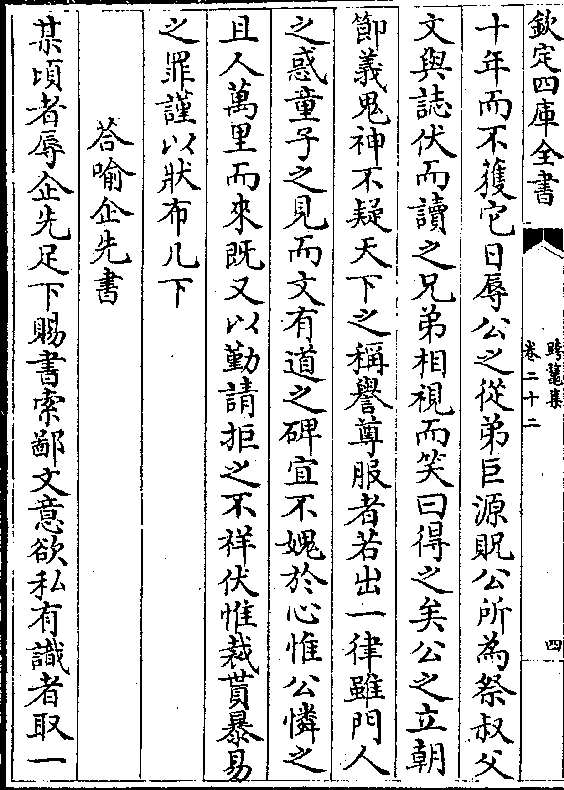 欽定四庫全書
跨鼇集
卷二十二
四
十年而不獲它日辱公之從弟巨源貺公所為祭叔父
文與誌伏而讀之兄弟相視而笑曰得之矣公之立朝
節義鬼神不疑天下之稱譽尊服者若出一律雖門人
之惑童子之見而文有道之碑宜不媿於心惟公憐之
且人萬里而來既又以勤請拒之不祥伏惟裁貰暴易
之罪謹以狀布几下
荅喻企先書
某頃者辱企先足下賜書索鄙文意欲私有識者取一